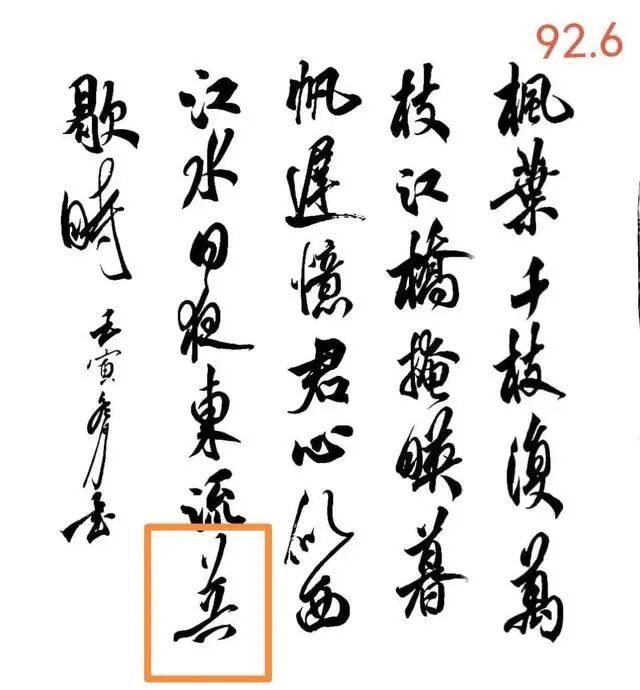 92.6
楓葉千枝復萬
枝江橋掩暎暮
帆遲憶君心似西
江水日夜東流無
歇時
壬寅 書